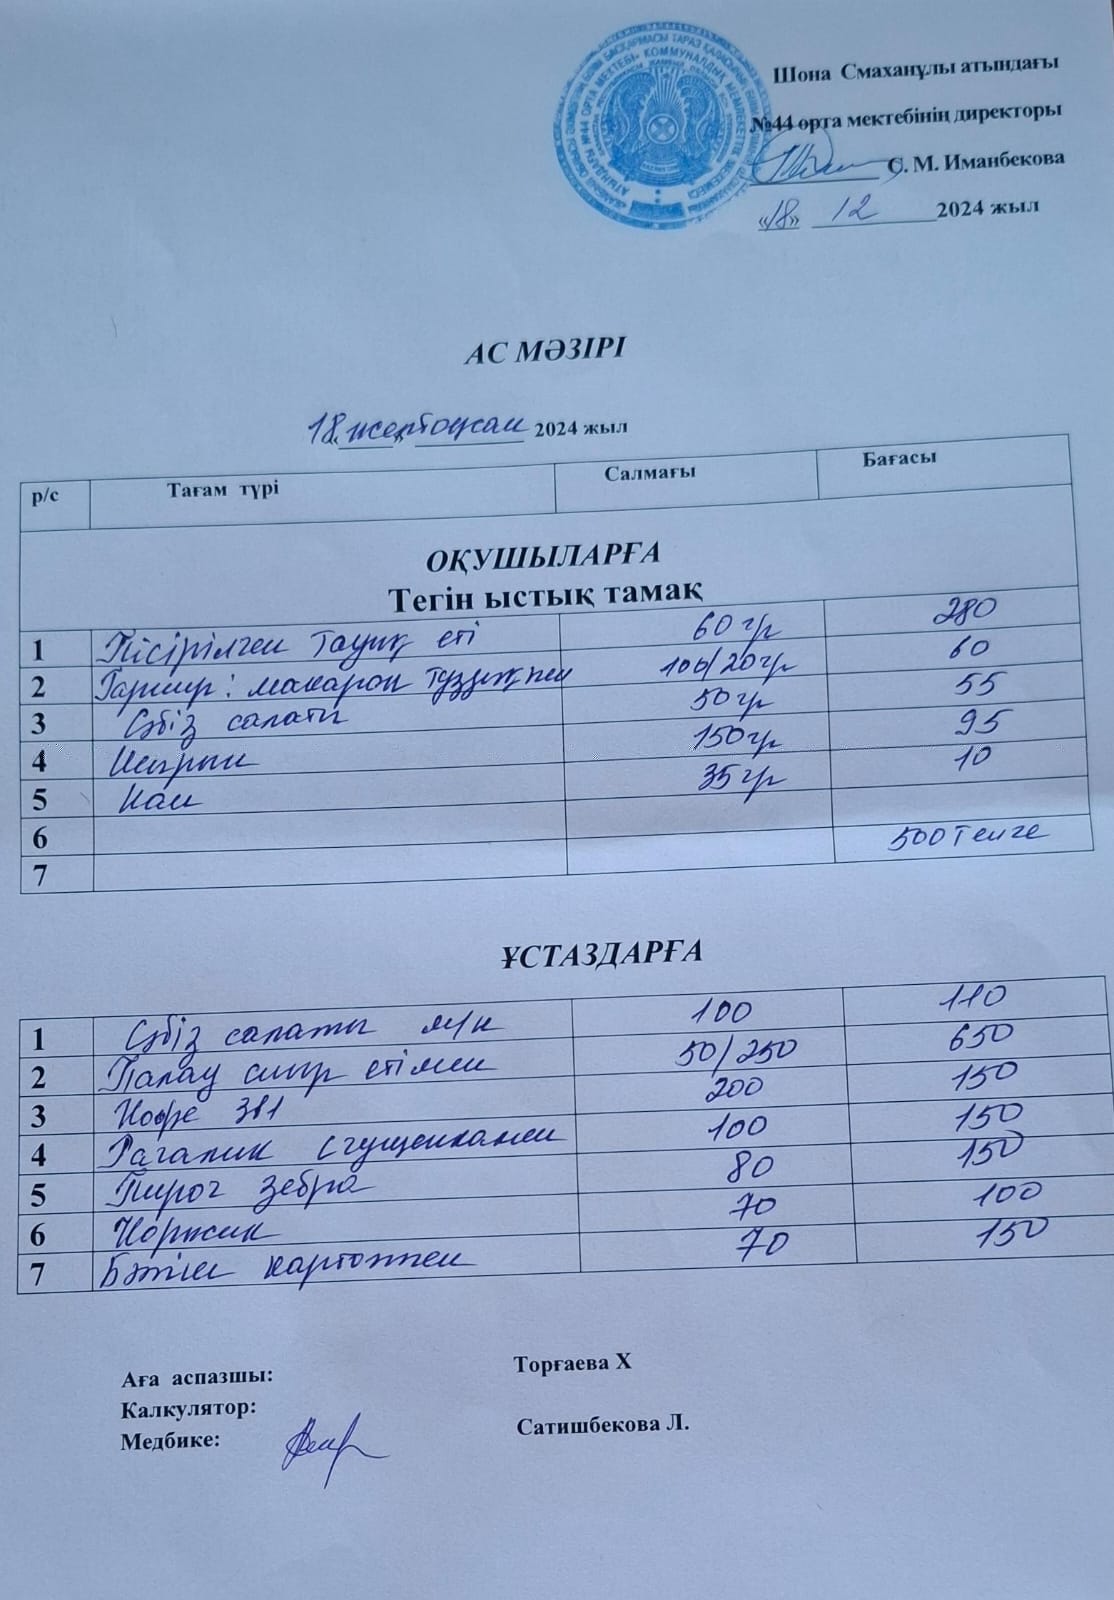 Шона Смаханұлы атындағы
№44 орта мектебінің директоры
С. М. Иманбекова
«18» 12 2024 жыл
АС МӘЗІРІ
18 желтоқсан 2024 жыл
р/с Тағам түрі Салмағы Бағасы
ОҚУШЫЛАРҒА
Тегін ыстық тамақ
1 Пісірілген тауық еті 60 гр 280
2 Гарнир: макарон тұздықпен 100/20гр 60
3 Сәбіз салаты 50гр 55
4 Шырын 150гр 95
5 Нан 35гр 10
6
7 500 тенге
ҰСТАЗДАРҒА
1 Сәбіз салаты 100 110
2 Палау сиыр етімен 50/250 650
3 Кофе 3в1 200 150
4 Рагалик сгущенкамен 100 150
5 Пирог зебра 80 150
6 Коржик 70 100
7 Бәтін картоппен 70 150
Аға аспазшы: Торғаева Х
Калкулятор:
Медбике: Сатишбекова Л.